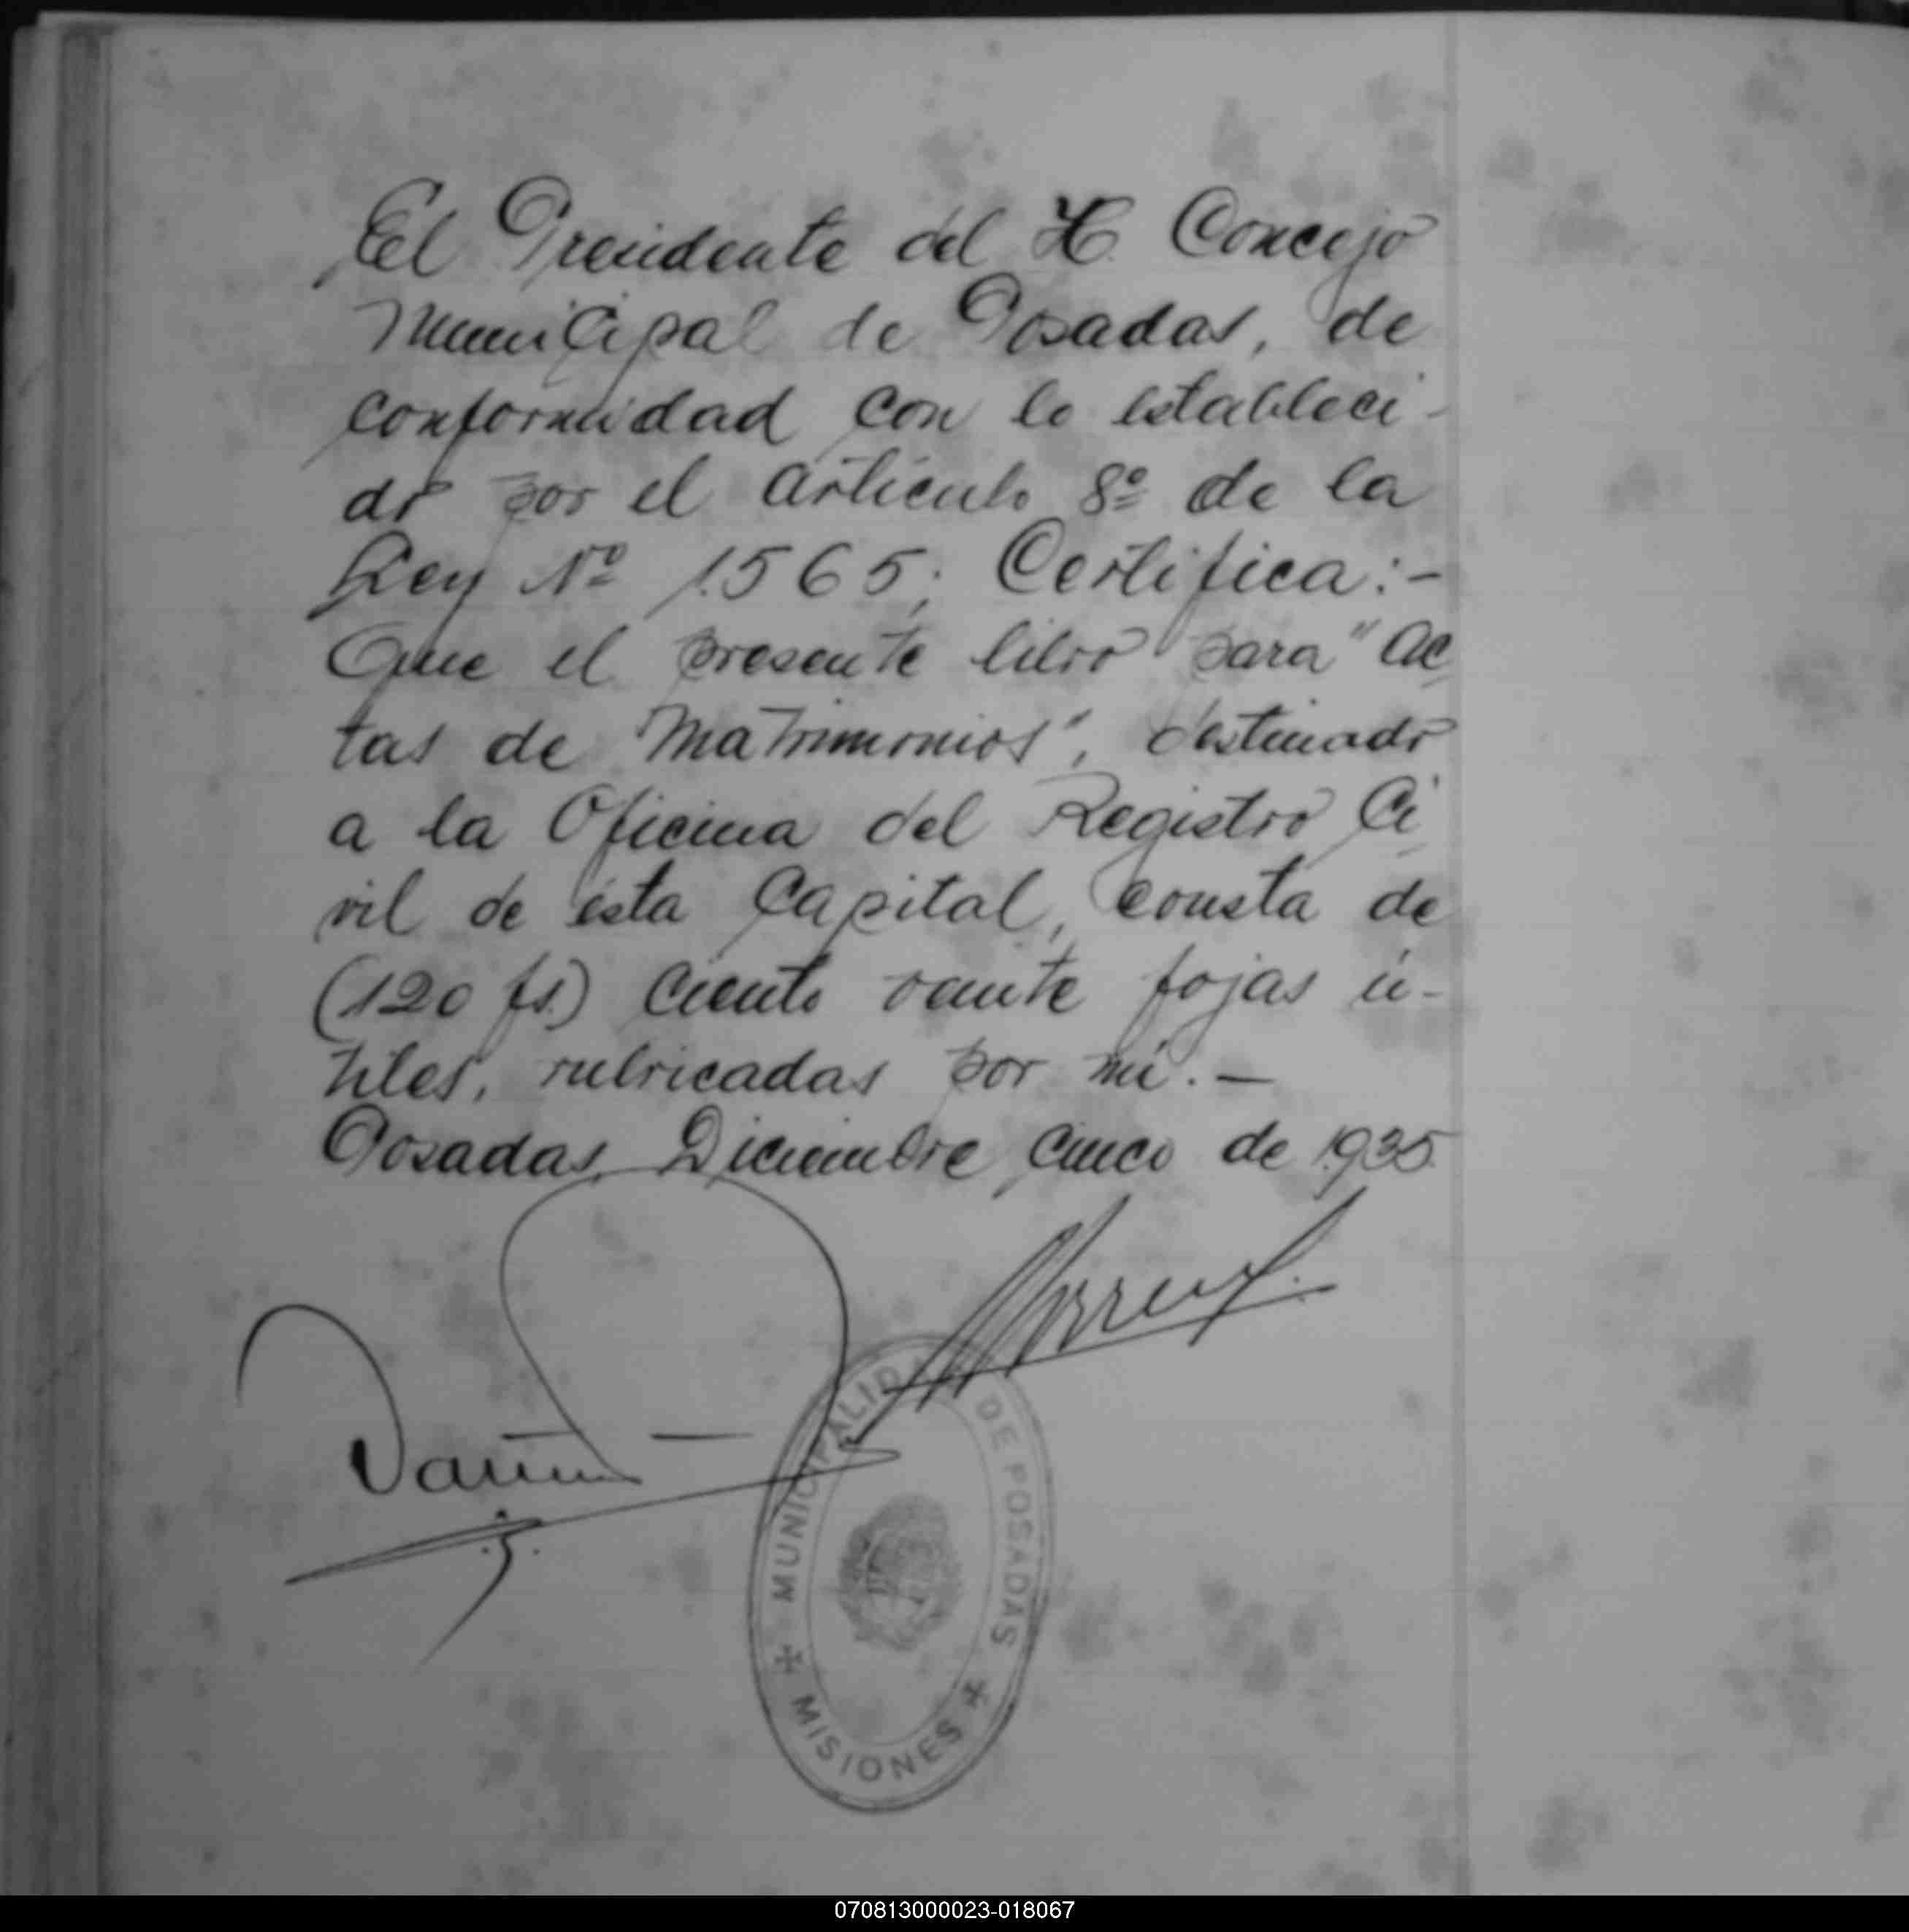 El Presidente del H. Concejo
Municipal de Posadas, de
conformidad con lo estableci-
do por el artículo 8º de la
Ley Nº 1.565; Certifica:-
Que el presente libro para "Ac
tas de Matrimonios", destinado
a la Oficina del Registro Ci
vil de ésta Capital, consta de
(120 fs.) ciento veinte fojas ú-
tiles, rubricadas por mí.-
Posadas, Diciembre cinco de 1935
MUNICIPALIDAD DE POSADAS
MISIONES
070813000023-018067